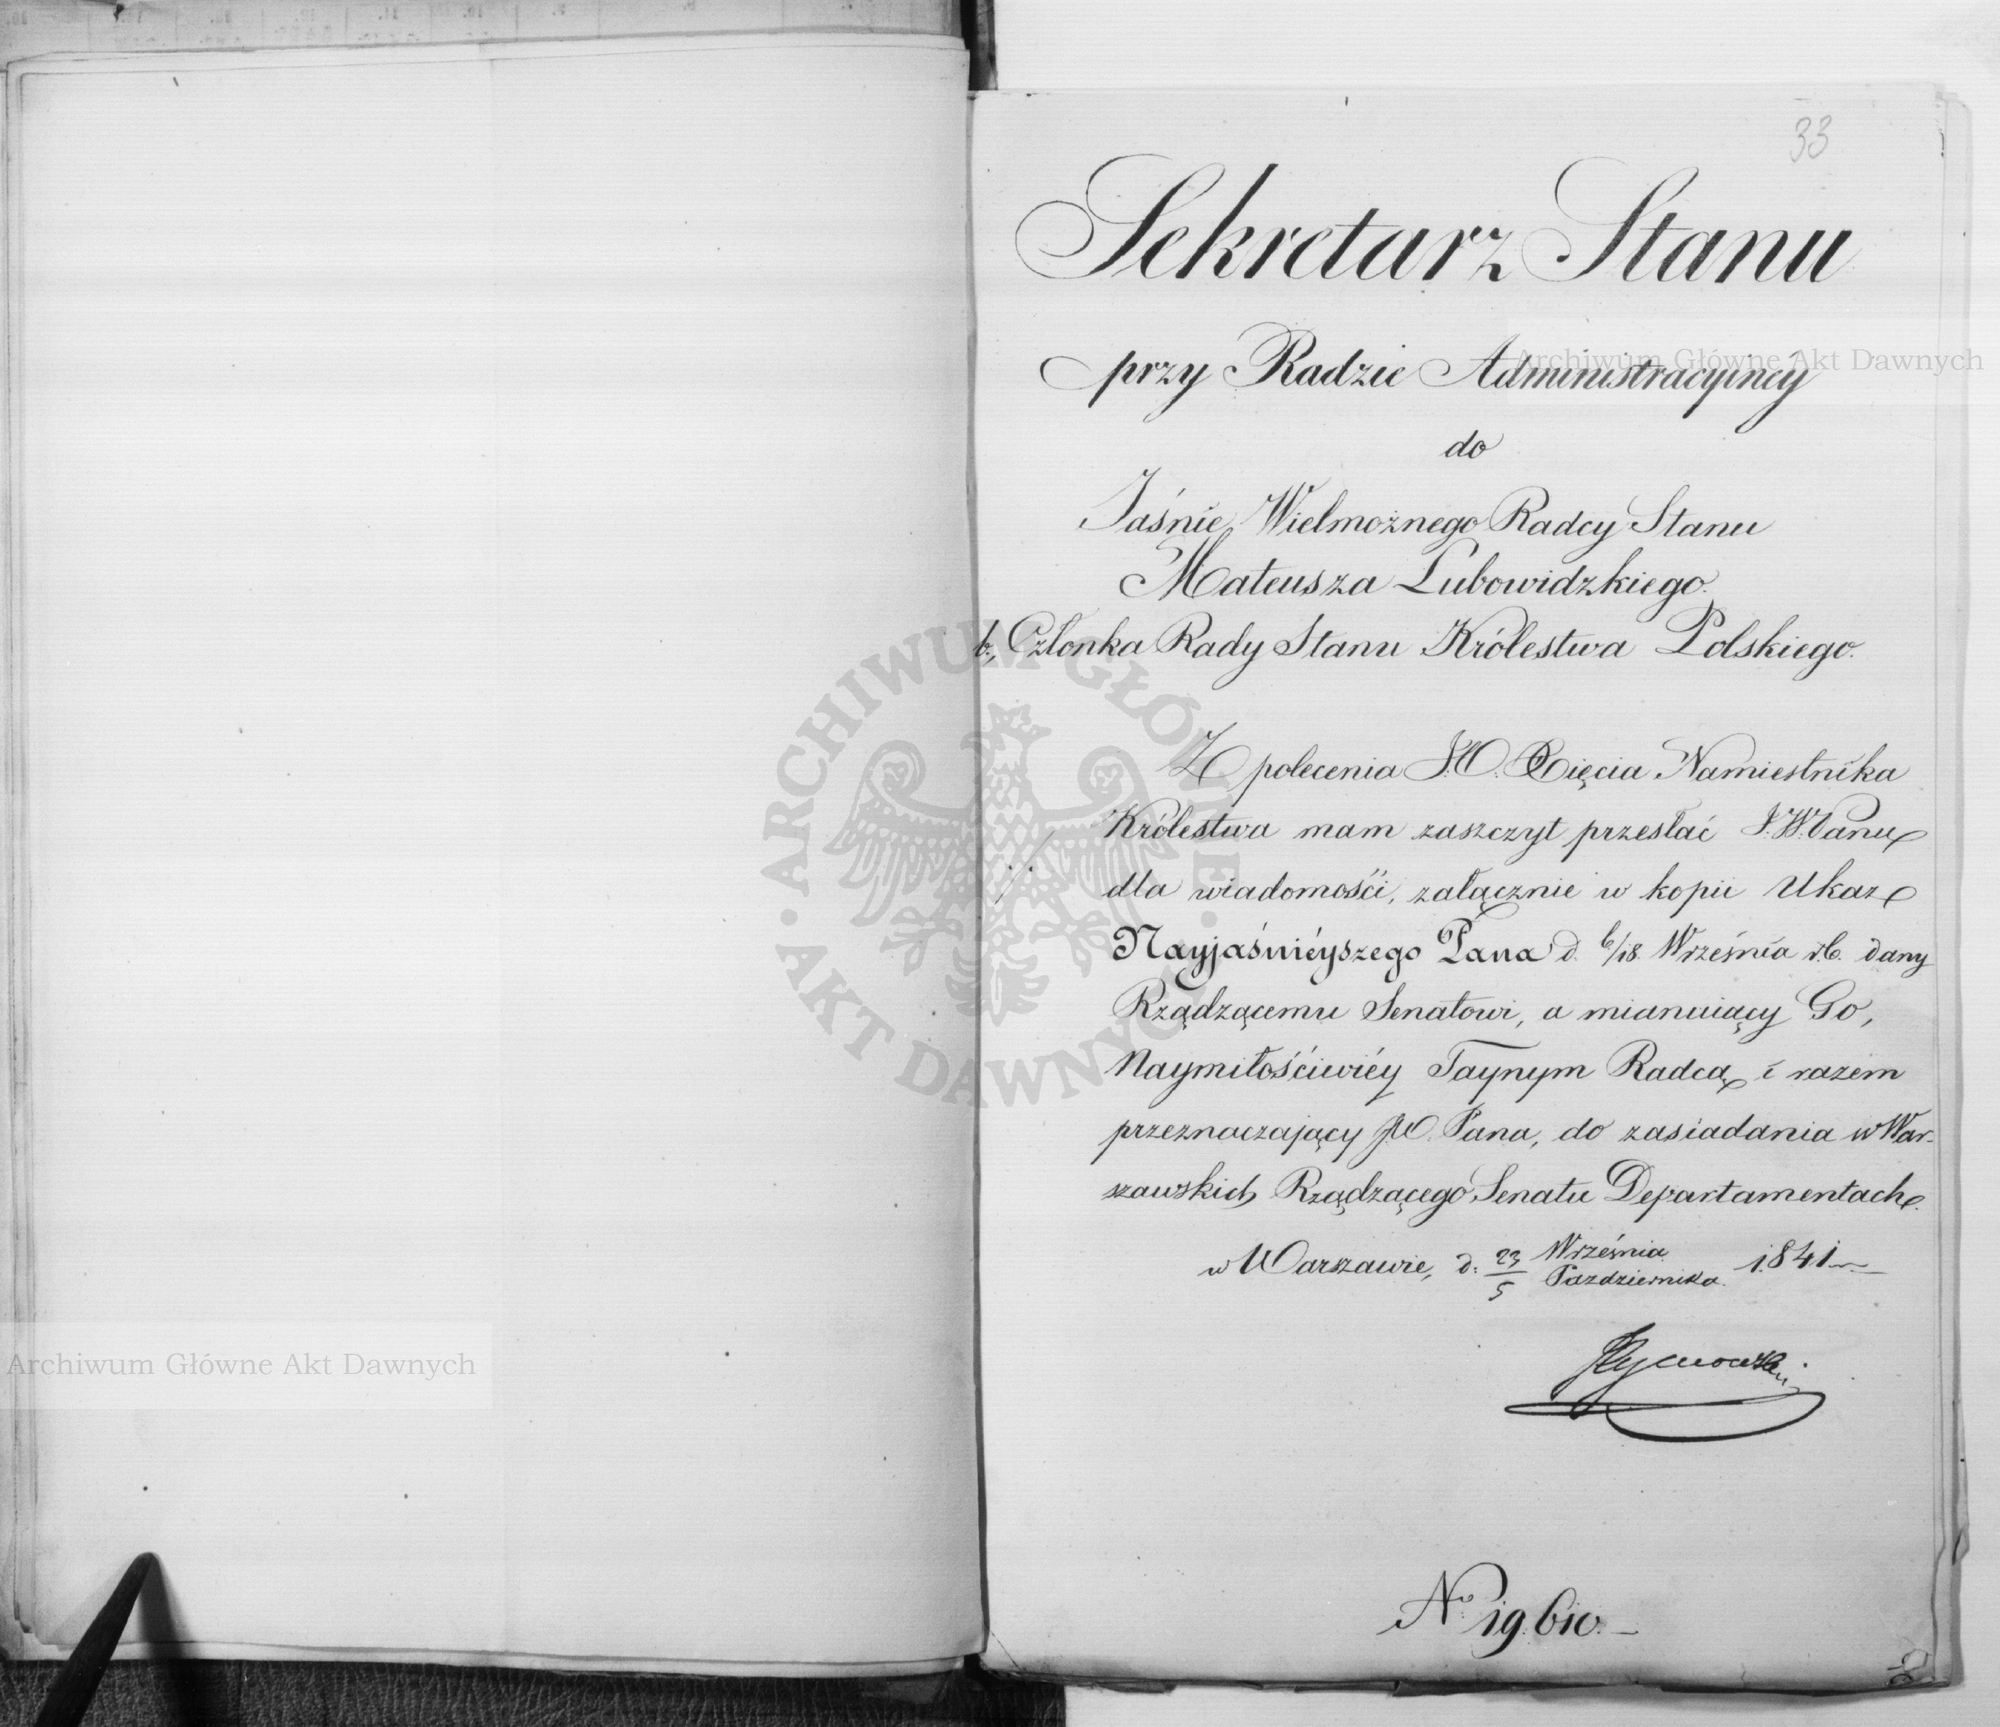 33
Sekretarz Stanu
przy Radzie Administracyinéy
do
Jaśnie Wielmożnego Radcy Stanu
Mateusza Lubowidzkiego.
b., Członka Rady Stanu Królestwa Polskiego.
Z polecenia J.O. Xięcia Namiestnika
Królestwa mam zaszczyt przesłać J.W. Panu
dla wiadomości, załącznie w kopii Ukaz
Nayjaśniéyszego Pana d. 6/18 Września r.b. dany
Rządzącemu Senatowi, a mianuiący Go,
Naymiłościwiéy Taynym Radcą i razem
przeznaczający JW. Pana, do zasiadania w War-
szawskich Rządzącego Senatu Departamentach.
w Warszawie, d: 23/5 Września/Października 1841
No 19.610.
Archiwum Główne Akt Dawnych
Archiwum Główne Akt Dawnych
ARCHIWUM GŁÓWNE · AKT DAWNYCH ·